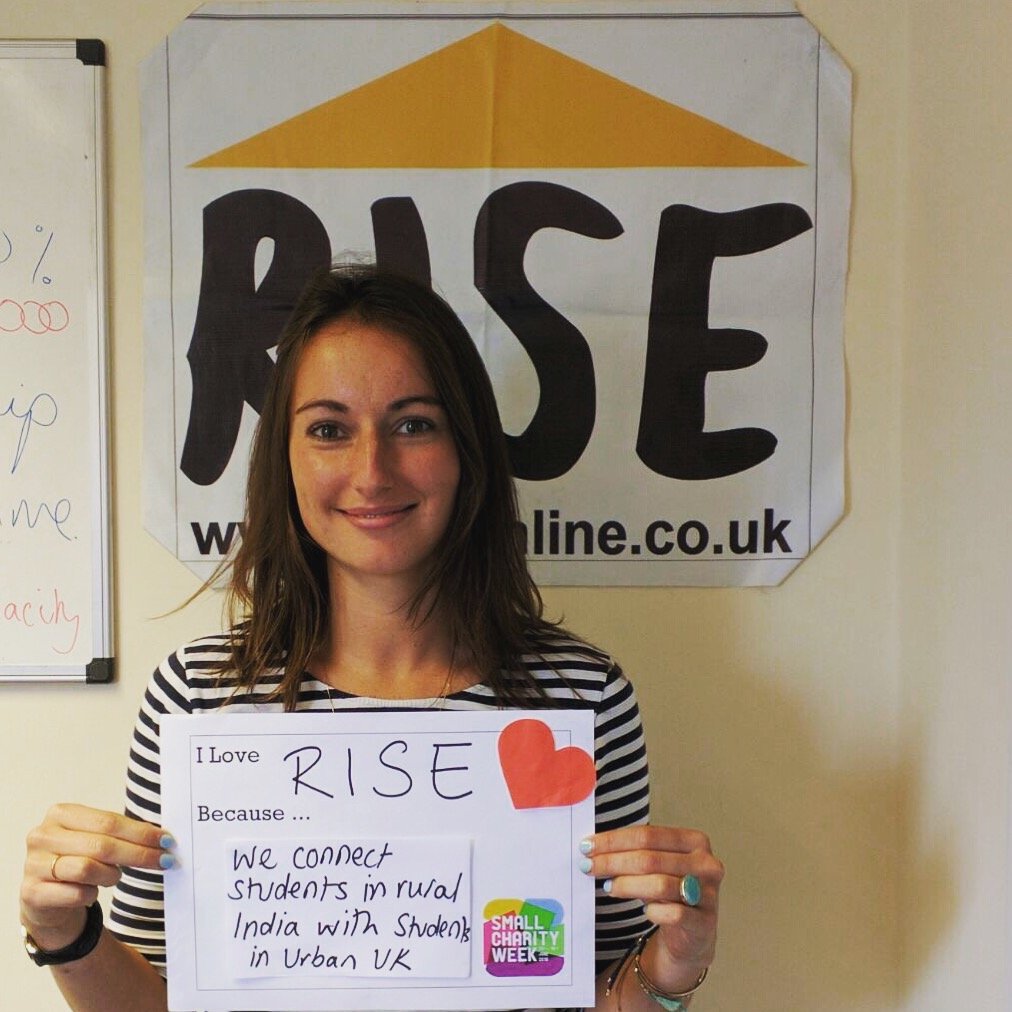 RISE
line.co.uk
%
ip
acity
I Love RISE
Because ...
We connect
students in rural
India with Students
in Urban UK
SMALL
CHARITY
WEEK